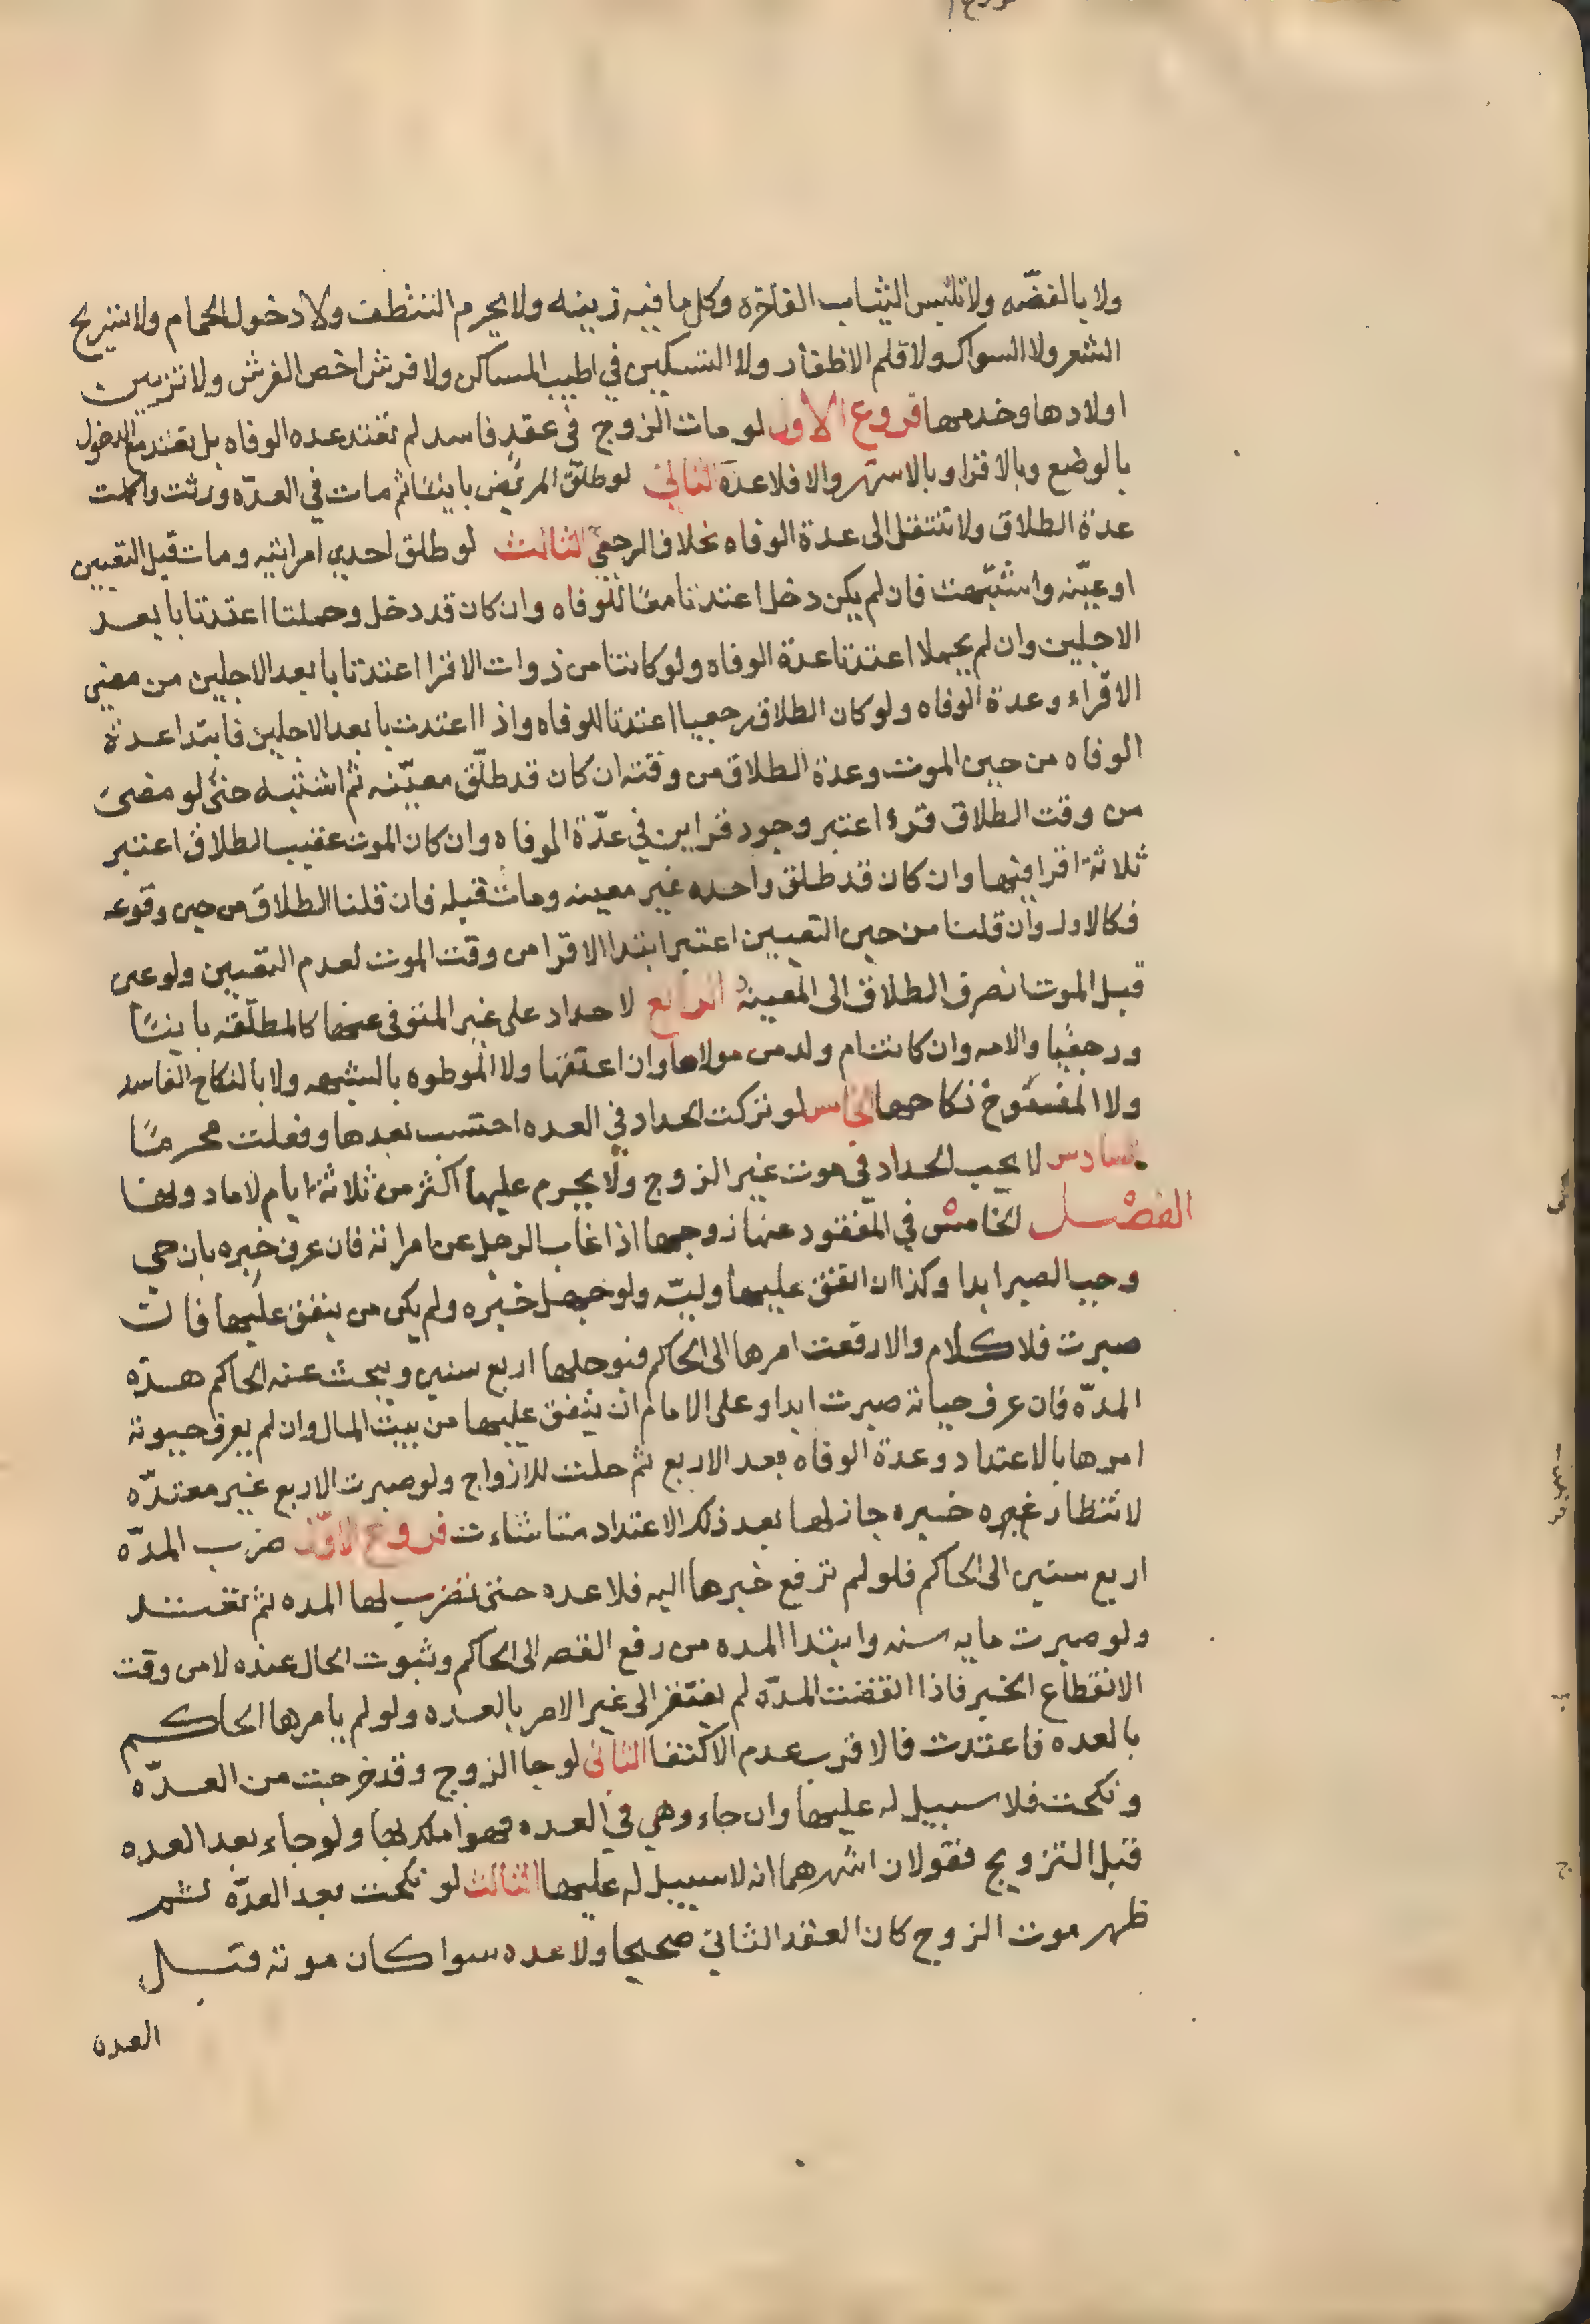 ولا بالفضّه ولا تلبس الثياب الفاخره وكل ما فيه زينه ولا يحرم التنظف ولا دخول الحمام ولا تسريح
الشعر ولا السواك ولا قلم الاظفار ولا التسكين في اطيب المساكن ولا فرش اخص الفرش ولا تزيين
اولادها وخدمها فروع الاول لو مات الزوج في عقد فاسد لم تعتد عده الوفاه بل تعتد مع الدخول
بالوضع وبالاقرا وبالاشهر والا فلا عدة الثاني لو طلق المريض باينًا ثم مات في العدّه ورثت واكملت
عدة الطلاق ولا تنتقل الى عدة الوفاه بخلاف الرجعي الثالث لو طلق احدي امراتيه ومات قبل التعيين
او عيّنه واشتبهت فان لم يكن دخل اعتدتا معًا للوفاه وان كان قد دخل وحملتا اعتدتا بابعد
الاجلين وان لم يحملا اعتدتا عدة الوفاه ولو كانتا من ذوات الاقرا اعتدتا بابعد الاجلين من مضي
الاقراء وعدة الوفاه ولو كان الطلاق رجعيا اعتدتا للوفاه واذا اعتدت بابعد الاجلين فابتدا عدة
الوفاه من حين الموت وعدة الطلاق من وقته ان كان قد طلّق معيّنه ثم اشتبه حتى لو مضى
من وقت الطلاق قرء اعتبر وجود قراين في عدّة الوفاه وان كان الموت عقيب الطلاق اعتبر
ثلاثة اقرا فيها وان كان قد طلق واحده غير معينه ومات قبله فان قلنا الطلاق من حين وقوعه
فكالاول وان قلنا من حين التعيين اعتبر ابتدا الاقرا من وقت الموت لعدم التعيين ولو عين
قبل الموت انصرف الطلاق الى المعينة الرابع لا حداد على غير المتوفى عنها كالمطلّقه باينًا
ورجعيا والامه وان كانت ام ولد من مولاها وان اعتقها ولا الموطوه بالشبهه ولا بالنكاح الفاسد
ولا المفسوخ نكاحها الخامس لو تركت الحداد في العده احتسب بعدها وفعلت محرمًا
السادس لا يجب الحداد في موت غير الزوج ولا يحرم عليها اكثر من ثلاثة ايام لا ما دونها
الفصل الخامس في المفقود عنها زوجها اذا غاب الرجل عن امراته فان عرف خبره بان حي
وجب الصبر ابدا وكذا ان انفق عليها وليّه ولو جهل خبره ولم يكن من ينفق عليها فان
صبرت فلا كلام والا رفعت امرها الى الحاكم فتوجلها اربع سنين ويبحث عنه الحاكم هذه
المدّه فان عرف حياته صبرت ابدا وعلى الامام ان ينفق عليها من بيت المال وان لم يعرف حيوته
امرها بالاعتداد وعدة الوفاه بعد الاربع ثم حلت للازواج ولو صبرت الاربع غير معتدّه
لانتظار خبره جاز لها بعد ذلك الاعتداد متا شاءت فروع الاوّل ضرب المدّه
اربع سنين الى الحاكم فلو لم ترفع خبرها اليه فلا عده حتى تضرب لها المده ثم تعتد
ولو صبرت مايه سنه وابتدا المده من رفع القصه الى الحاكم وثبوت الحال عنده لا من وقت
الانقطاع الخبر فاذا انقضت المدّه لم يفتقر الى غير الامر بالعده ولو لم يامرها الحاكم
بالعده فاعتدت فالاقرب عدم الاكتفا الثاني لو جا الزوج وقد خرجت من العدّه
ونكحت فلا سبيل له عليها وان جاء وهي في العده فهو املك لها ولو جاء بعد العده
قبل التزويج فقولان اشهرهما انه لا سبيل له عليها الثالث لو نكحت بعد العدّه ثم
ظهر موت الزوج كان العقد الثاني صحيحا ولا عده سوا كان موته قبل
العدة